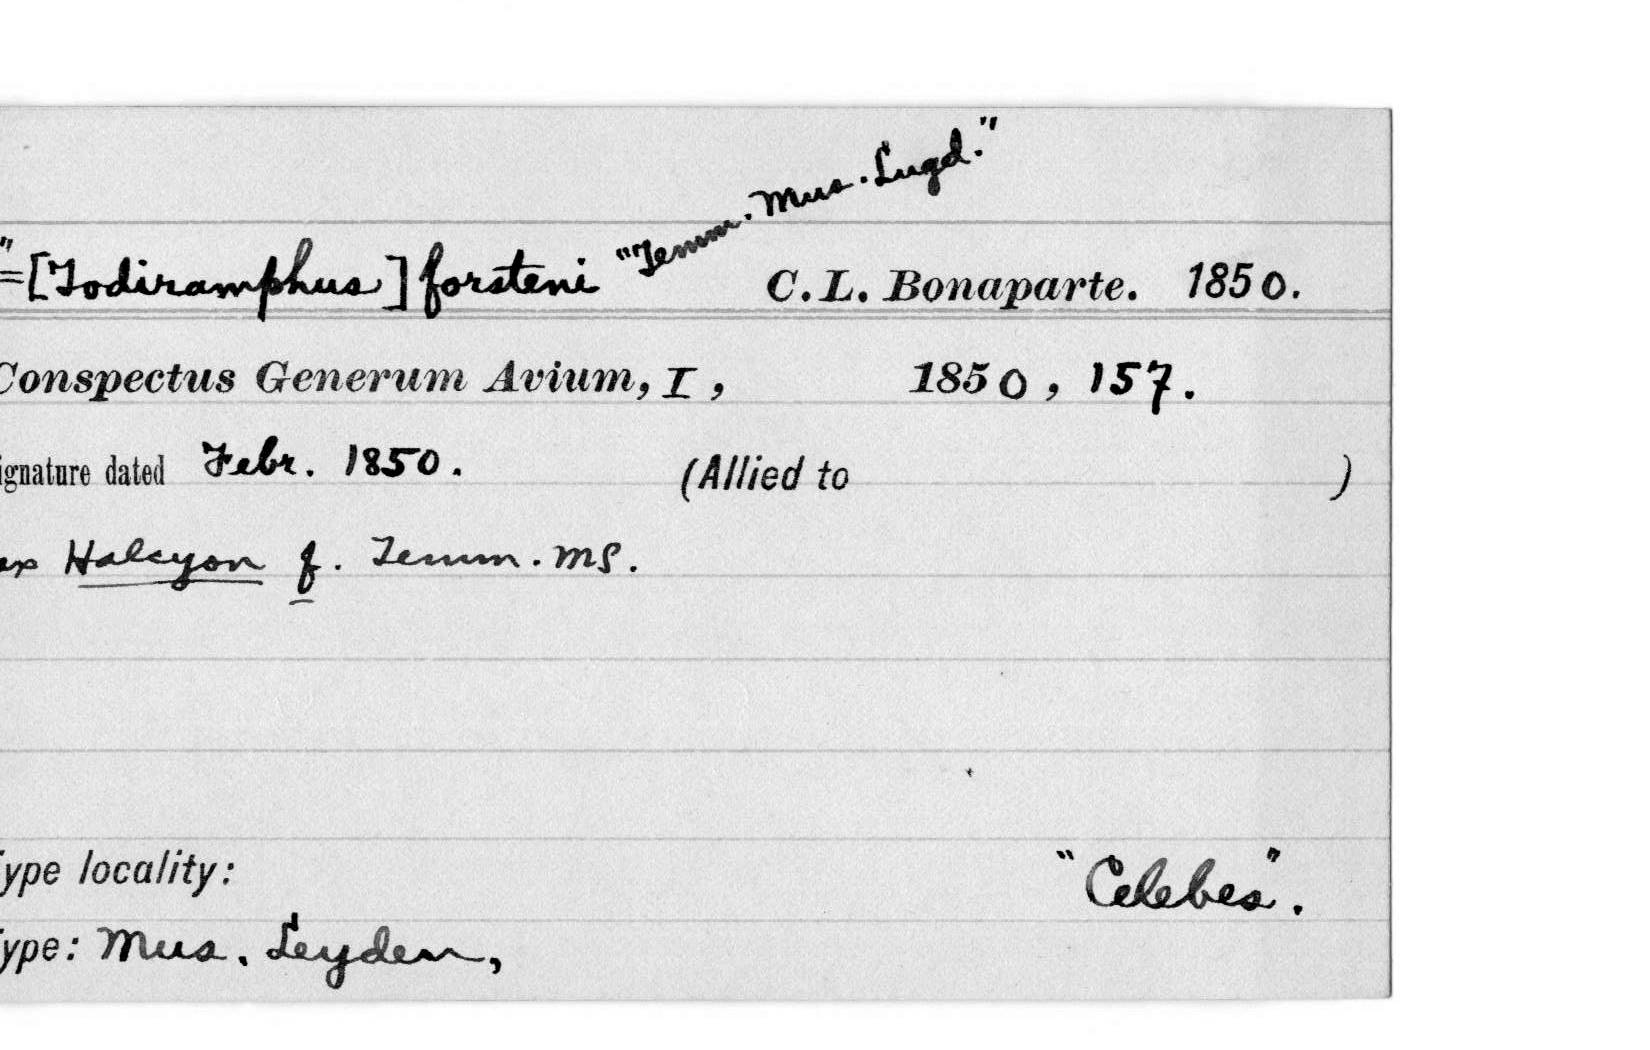 "=[Todiramphus] forsteni "Temm. Mus. Lugd." C. L. Bonaparte. 1850.
Conspectus Generum Avium, I, 1850, 157.
ignature dated Febr. 1850. (Allied to )
ex Halcyon f. Temm. MS.
Type locality: "Celebes".
Type: Mus. Leyden,